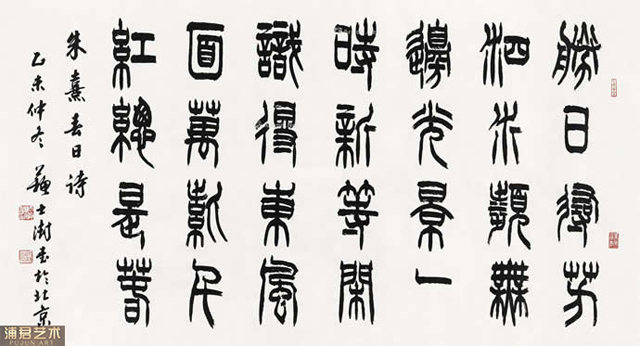 勝日尋芳
泗水瀕無
邊光景一
時新等閑
識得東風
面萬紫千
紅總是春
朱熹春日詩
乙未仲冬蘇士澍書於北京
浦君艺术
PUJUN ART